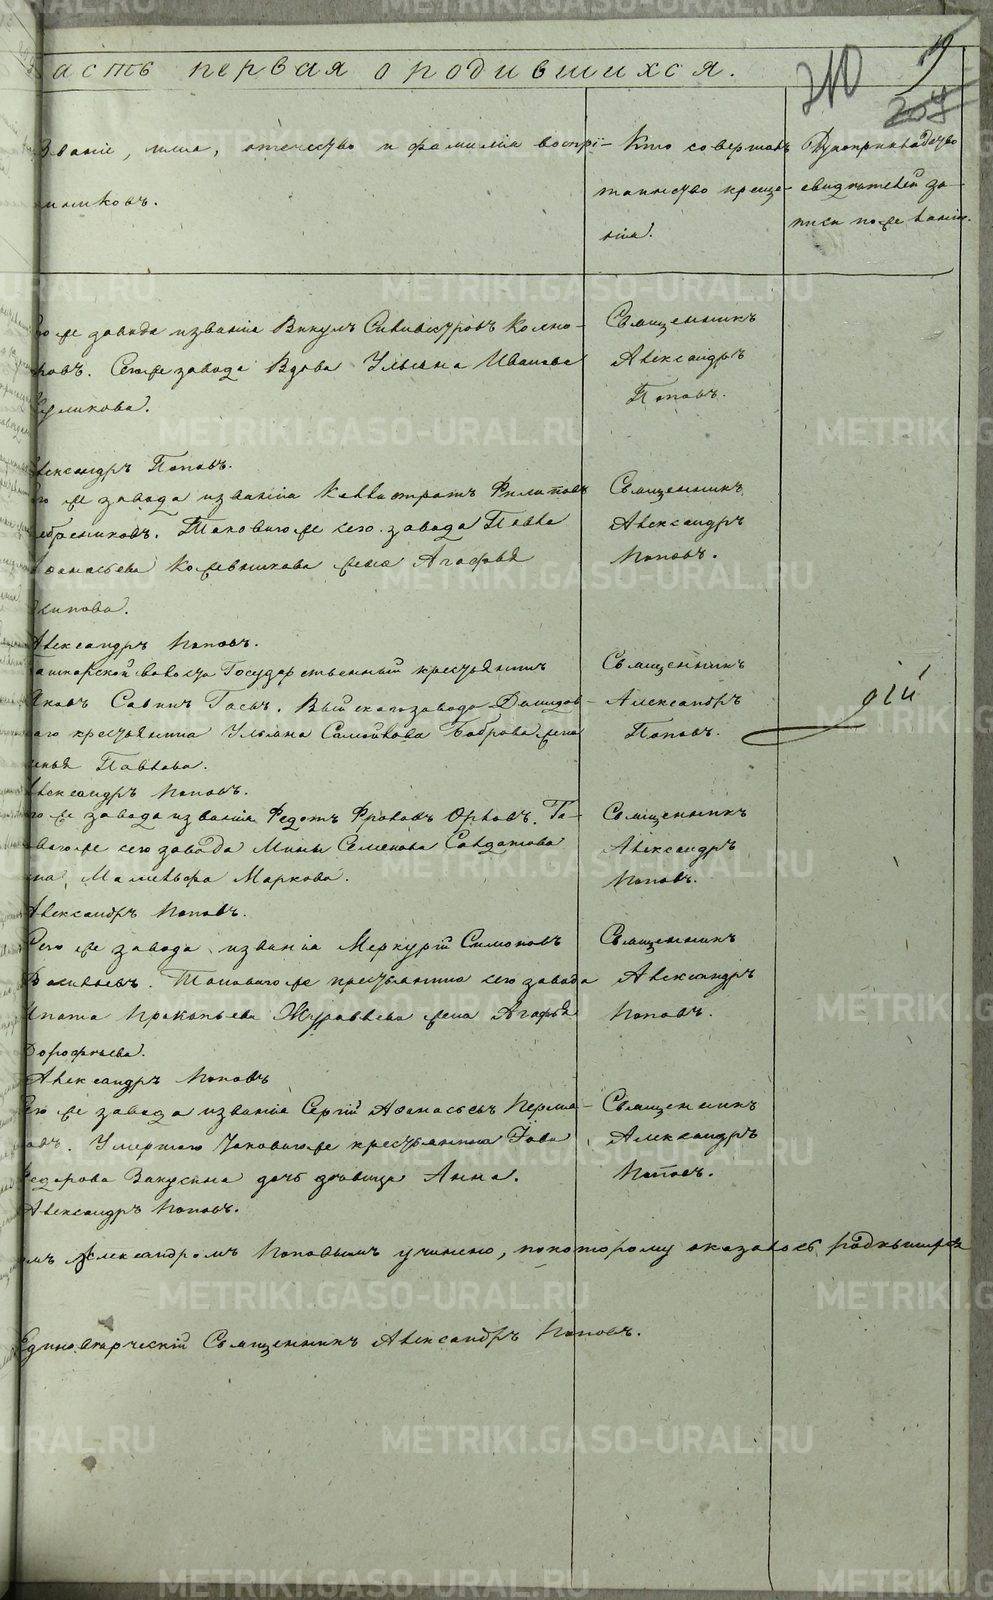 асть первая о родившихся.
19
210
204
Званіе, имя, отчество и фамилія воспрі-
емниковъ.
Кто совершалъ
таинство креще-
нія.
Рукоприкладство
свидѣтелей за-
писи по желанію.
го же завода изванія Викулъ Силивестровъ
ровъ. Сегоже завода Вдова Ульяна Иванова
Священникъ
Александръ
Поповъ.
Александръ Поповъ.
го же завода изванія Каллистратъ Филиповъ
Таковагоже сего завода Павла
Афанасьева Кожевникова жена Агафья
Осипова.
Священникъ
Александръ
Поповъ.
Александръ Поповъ.
волости Государственный крестьянинъ
Яковъ Савинъ Выйскаго завода Демидов-
скаго крестьянина Ульяна Самойлова Боброва жена
Павлова.
Священникъ
Александръ
Поповъ.
Александръ Поповъ.
го же завода изванія Федотъ Фроловъ Орловъ. Та-
ковагоже сего завода Мины Семенова Солдатова
жена, Маремьяна Маркова.
Священникъ
Александръ
Поповъ.
Александръ Поповъ.
Сего же завода изванія Меркурій Симоновъ
Васильевъ. Таковагоже крестьянина сего завода
Ипата Прокопьева Журавлева жена Агафья
Дорофеева.
Священникъ
Александръ
Поповъ.
Александръ Поповъ
Сего же завода изванія Сергій Афанасьевъ Перми-
новъ. Умершаго таковагоже крестьянина Іова
Федорова Вакусина дочь дѣвица Анна.
Священникъ
Александръ
Поповъ.
Александръ Поповъ.
омъ Александромъ Поповымъ учинено, покоторому оказалось родившихся
Единовѣрческій Священникъ Александръ Поповъ.
METRIKI.GASO-URAL.RU